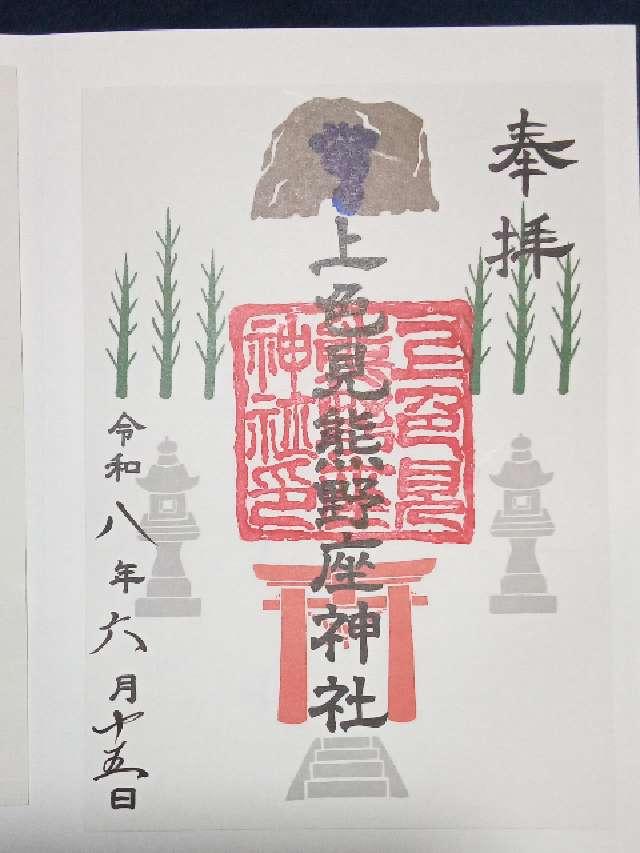 奉拝
上色見熊野座神社
上色見
神社印
令和八年六月十五日